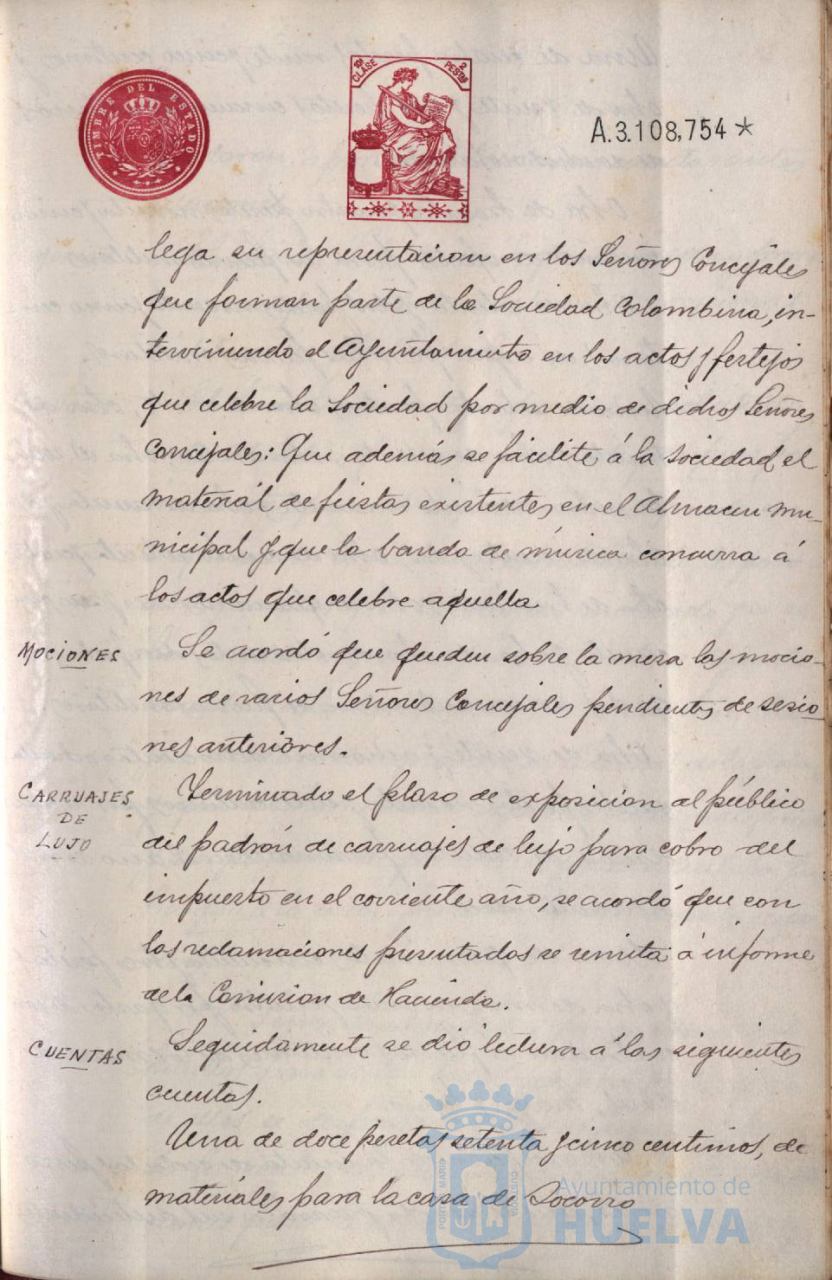 TIMBRE DEL ESTADO
10ª CLASE 2 PESETAS
A.3.108,754 *
lega su representacion en los Señores Concejales
que forman parte de la Sociedad Colombina, in-
terviniendo el Ayuntamiento en los actos y festejos
que celebre la Sociedad por medio de dichos Señores
Concejales: Que además se facilite á la Sociedad el
material de fiestas existentes en el Almacen mu-
nicipal y que la banda de música concurra á
los actos que celebre aquella
MOCIONES
Se acordó que queden sobre la mesa las mocio-
nes de varios Señores Concejales pendientes de sesio-
nes anteriores.
CARRUAJES
DE
LUJO
Terminado el plazo de exposicion al público
del padrón de carruajes de lujo para cobro del
impuesto en el corriente año, se acordó que con
las reclamaciones presentadas se remita á informe
de la Comision de Hacienda.
CUENTAS
Seguidamente se dió lectura á las siguientes
cuentas.
Una de doce pesetas setenta y cinco centimos, de
materiales para la casa de Socorro
Ayuntamiento de
HUELVA